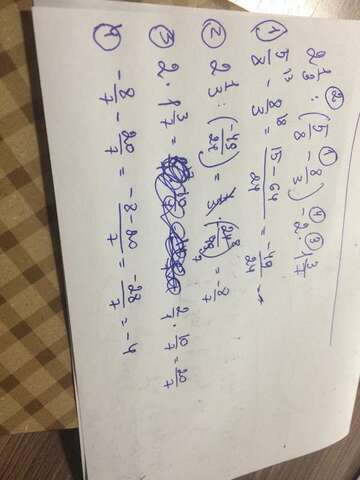 2 1/3 : (5/8 - 8/3) - 2 · 1 3/7
① 5/8 - 8/3 = (15 - 64)/24 = -49/24
② 2 1/3 : (-49/24) = 7/3 · (-24/49) = -8/7
③ 2 · 1 3/7 = 2/1 · 10/7 = 20/7
④ -8/7 - 20/7 = (-8-20)/7 = -28/7 = -4